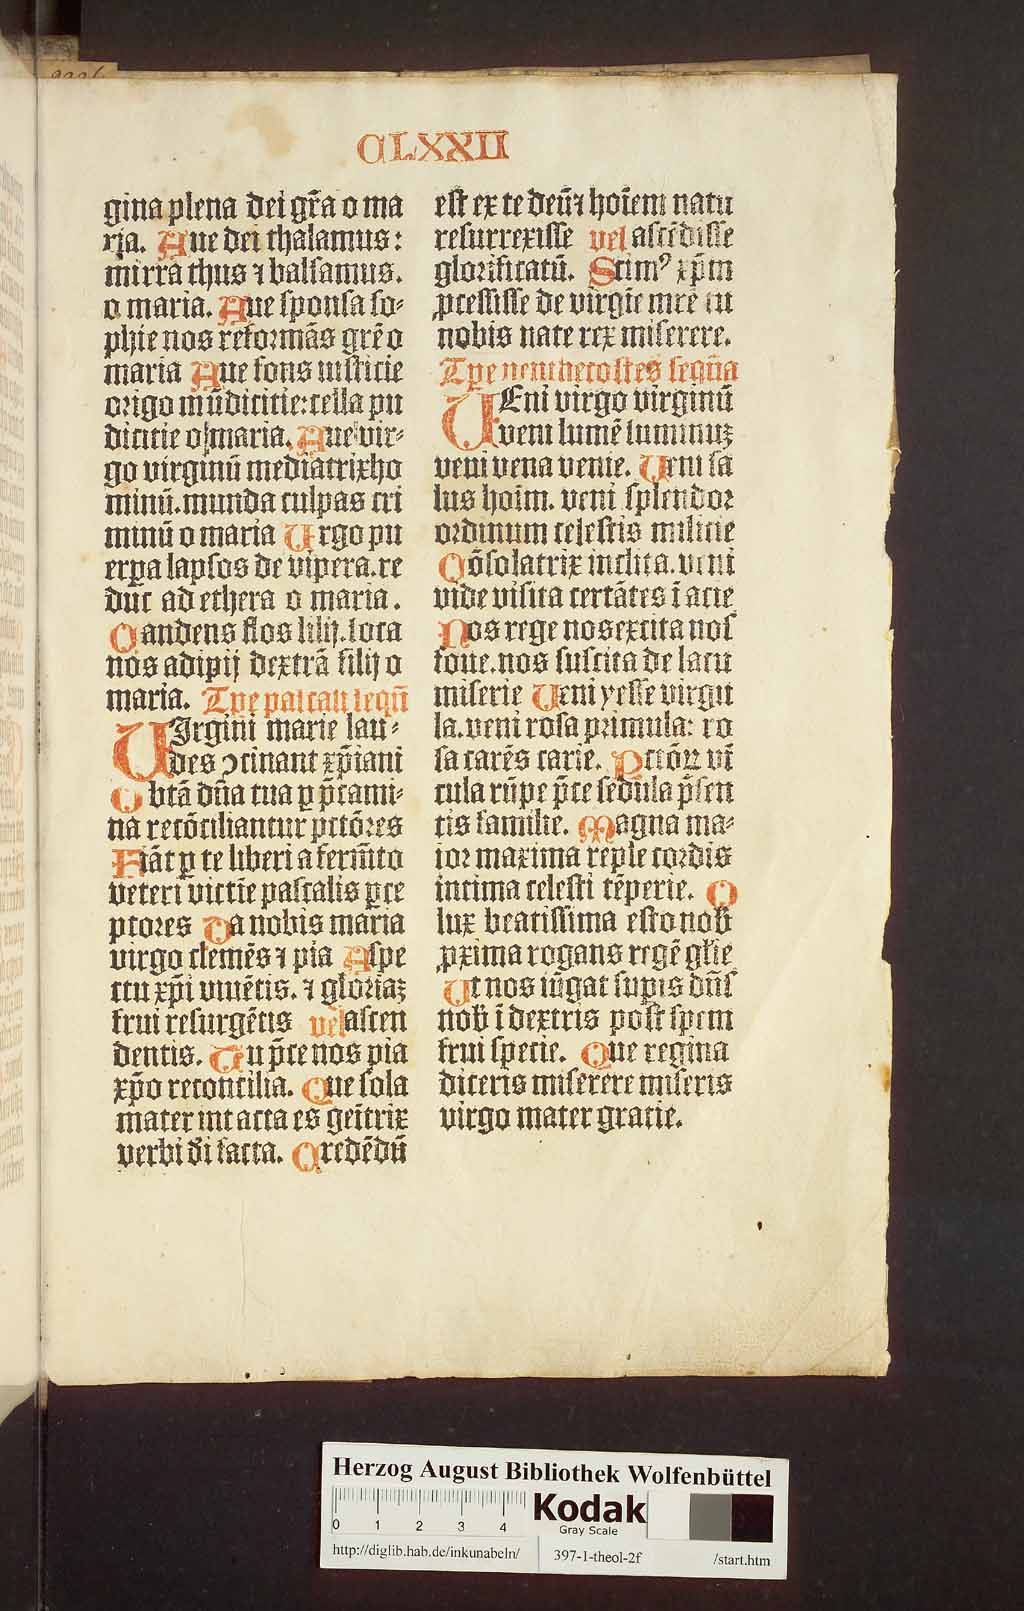 CLXXII
gina plena dei gr̃a o ma
ria. Aue dei thalamus:
mirra thus ⁊ balsamus.
o maria. Aue sponsa so-
phie nos reformãs grẽ o
maria Aue fons iusticie
origo mũdicitie: cella pu
dicitie o maria. Aue vir-
go virginũ mediatrix ho
minũ. munda culpas cri
minũ o maria Urgo pu
erpa lapsos de vipera. re
duc ad ethera o maria.
Candens flos lilij. loca
nos adipij dextrã filij o
maria. Tpe pascali sequñ
VIrgini marie lau-
des ɔcinant xp̃iani
Obtã dña tua p p̃cami-
na recõciliantur pctõres
Fiãt ꝑ te liberi a ferm̃to
veteri victĩe pascalis ꝑce
ptores Da nobis maria
virgo clemẽs ⁊ pia Aspe
ctu xp̃i viuẽtis. ⁊ gloriaꝫ
frui resurgẽtis vel ascen
dentis. Tu p̃ce nos pia
xp̃o reconcilia. Que sola
mater intacta es geñtrix
verbi dĩ facta. Credẽdũ
est ex te deũ ⁊ hoĩem natu
resurrexisse vel ascẽdisse
glorificatũ. Scimꝰ xp̃m
ꝓcessisse de virgĩe mr̃e tu
nobis nate rex miserere.
Tpe penthecostes sequña
VEni virgo virginũ
veni lumẽ luminuꝫ
veni vena venie. Veni sa
lus hoĩm. veni splendor
ordinum celestis milicie
Cõsolatrix inclita. veni
vide visita certãtes ĩ acie
Nos rege nos excita nos
foue. nos suscita de lacu
miserie Veni yesse virgu
la. veni rosa primula: ro
sa carẽs carie. Pctõꝝ vĩ
cula rũpe p̃ce sedula p̃sen
tis familie. Magna ma-
ior maxima reple cordis
intima celesti tẽperie. O
lux beatissima esto nob̃
ꝓxima rogans regẽ gl̃ie
Ut nos iũgat supis dñs
nob̃ ĩ dextris post spem
frui specie. Que regina
diceris miserere miseris
virgo mater gracie.
Herzog August Bibliothek Wolfenbüttel
0 1 2 3 4
Kodak
Gray Scale
http://diglib.hab.de/inkunabeln/ 397-1-theol-2f /start.htm